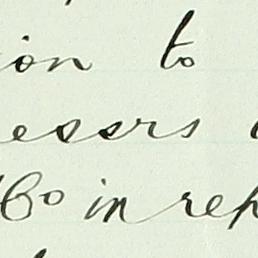 ion to
essrs
Co in rep